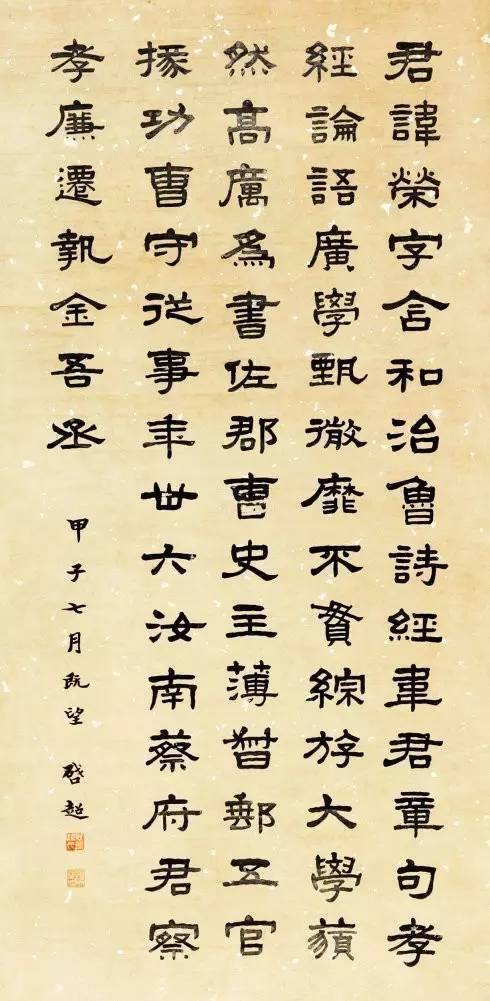 君諱榮字含和治魯詩經韋君章句孝
經論語廣學甄微靡不貫綜斿大學藐
然高厲爲書佐郡曹史主薄督郵五官
掾功曹守從事年卅六汝南蔡府君察
孝廉遷執金吾丞
甲子七月既望 啓超